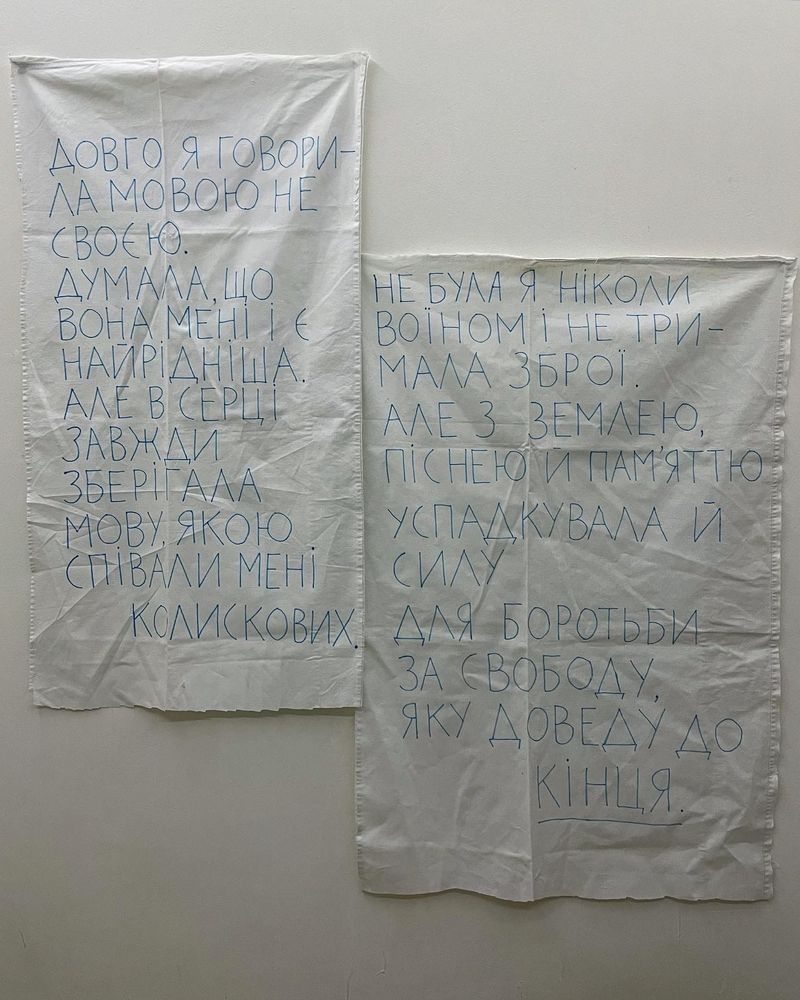 ДОВГО Я ГОВОРИ-
ЛА МОВОЮ НЕ
СВОЄЮ.
ДУМАЛА, ЩО
ВОНА МЕНІ І Є
НАЙРІДНІША.
АЛЕ В СЕРЦІ
ЗАВЖДИ
ЗБЕРІГАЛА
МОВУ, ЯКОЮ
СПІВАЛИ МЕНІ
КОЛИСКОВИХ.
НЕ БУЛА Я НІКОЛИ
ВОЇНОМ І НЕ ТРИ-
МАЛА ЗБРОЇ.
АЛЕ З ЗЕМЛЕЮ,
ПІСНЕЮ Й ПАМ'ЯТТЮ
УСПАДКУВАЛА Й
СИЛУ
ДЛЯ БОРОТЬБИ
ЗА СВОБОДУ,
ЯКУ ДОВЕДУ ДО
КІНЦЯ.